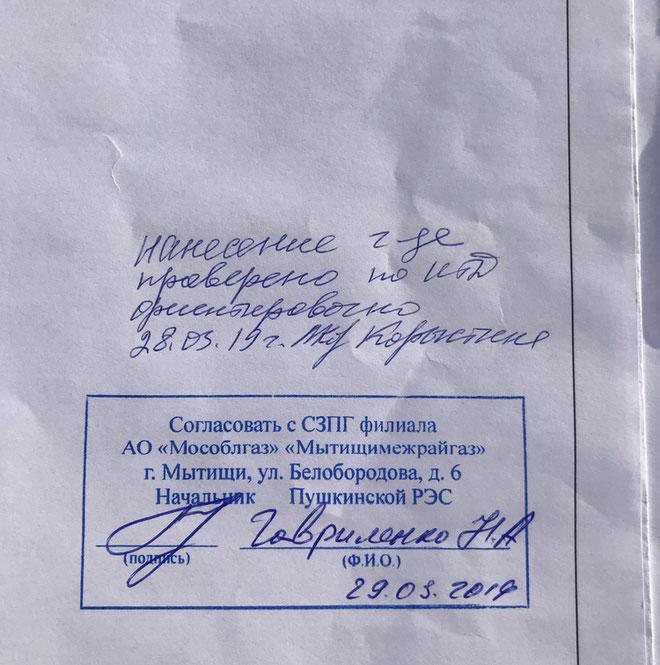 Нанесение г-де
проверено по ИТД
ориентировочно
28.03.19г. Корыстина
Согласовать с СЗПГ филиала
АО «Мособлгаз» «Мытищимежрайгаз»
г. Мытищи, ул. Белобородова, д. 6
Начальник Пушкинской РЭС
Гавриленко Н.А
(подпись) (Ф.И.О.)
29.03.2019